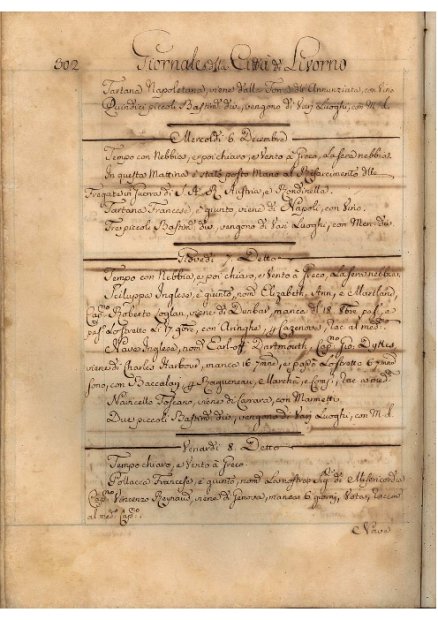 302 Giornale della Città di Livorno
Tartana Napoletana, viene dalla Torre dell' Annunziata, con Vino
Quindici piccoli Bastim.ti div., vengono di Varj Luoghi, con M. d.
Mercoldì 6. Decembre
Tempo con Nebbia, e poi chiaro, e Vento à Greco, la sera nebbia
In questa Mattina è stato posto Mano al Risarcimento delle
Fregate in Guerra di S. A. R. Austria, e Rondinella.
Tartana Francese, è giunto, viene di Napoli, con Vino.
Tre piccoli Bastim.ti div., vengono di Varj Luoghi, con Mer. div.
Giovedì 7. Detto
Tempo con Nebbia, e poi chiaro, e Vento à Greco, la sera nebbia
Filuppa Inglese, è giunto, nom.ta Elizabeth, Ann, e Maitland,
Cap.no Roberto Coglan, viene di Dunbar, manca dal 18. 8bre pass.,
pass. lo stretto li 17. con Aringhe, Cazenove, rac. al med.mo
Nave Inglese, nom.ta Earl of Dartmouth, Cap.no Gio. Dyttes,
viene di Charles Harbour, manca 16 9mre, e passò lo stretto
sono, con Baccalari, Ragueneau, e Marchi, e Comp.,
Navicello Toscano, viene di Carrara, con Marmetti
Due piccoli Bastim.ti div., vengono di Varj Luoghi, con M. d.
Venardì 8. Detto
Tempo chiaro, e Vento à Greco
Pollacca Francese, è giunto, nom.ta La nostra Sig.ra di Misericordia
Cap.no Vincenzo Reynaud, viene di Genova, manca 6 giorni, Vota, raccom.
al med. Cap.no
Nave